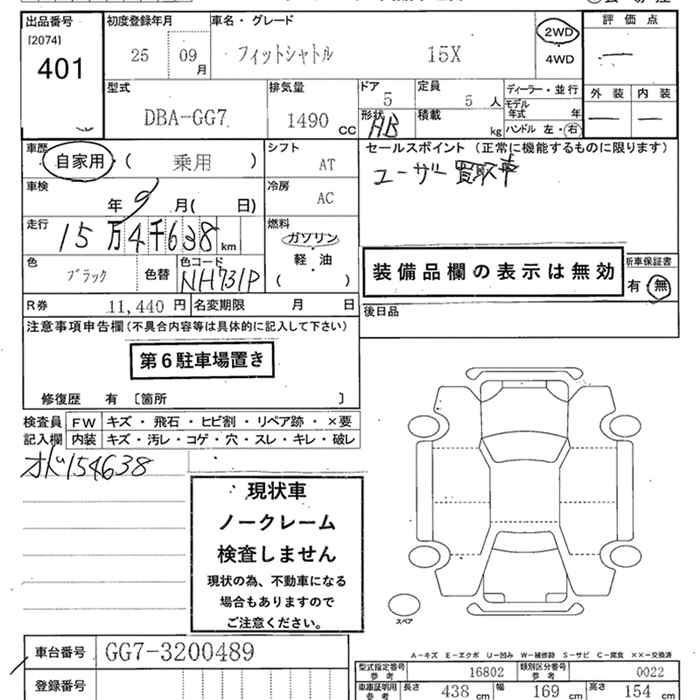 出品番号 初度登録年月 車名・グレード 評価点
[2074] 25 09月 フィットシャトル 15X 2WD
401 4WD
型式 排気量 ドア 定員 ディーラー・並行 外装 内装
DBA-GG7 1490 CC 5 5 人 モデル年式 年
形状 AB 積載 kg ハンドル 左・右
車歴 シフト セールスポイント (正常に機能するものに限ります)
自家用・( 乗用 ) AT ユーザー買取車
車検 冷房
年 9 月( 日) AC
走行 燃料
15万4千638 km ガソリン
軽・油
( ・ )
色 ブラック 色替 色コード NH731P
装備品欄の表示は無効 新車保証書
有・無
R券 11,440 円 名変期限 月 日 後日品
注意事項申告欄(不具合内容等は具体的に記入して下さい)
第6駐車場置き
修復歴 有 〔箇所 〕
検査員 FW キズ・飛石・ヒビ割・リペア跡・×要
記入欄 内装 キズ・汚レ・コゲ・穴・スレ・キレ・破レ
オド154638
現状車
ノークレーム
検査しません
現状の為、不動車になる
場合もありますので
ご注意ください。
スペア
車台番号 GG7-3200489
登録番号
A-キズ E-エクボ U-凹み W-補修跡 S-サビ C-腐食 ××-交換済
型式指定番号 参考 16802 類別区分番号 参考 0022
車庫証明用 参考 長さ 438 cm 幅 169 cm 高さ 154 cm